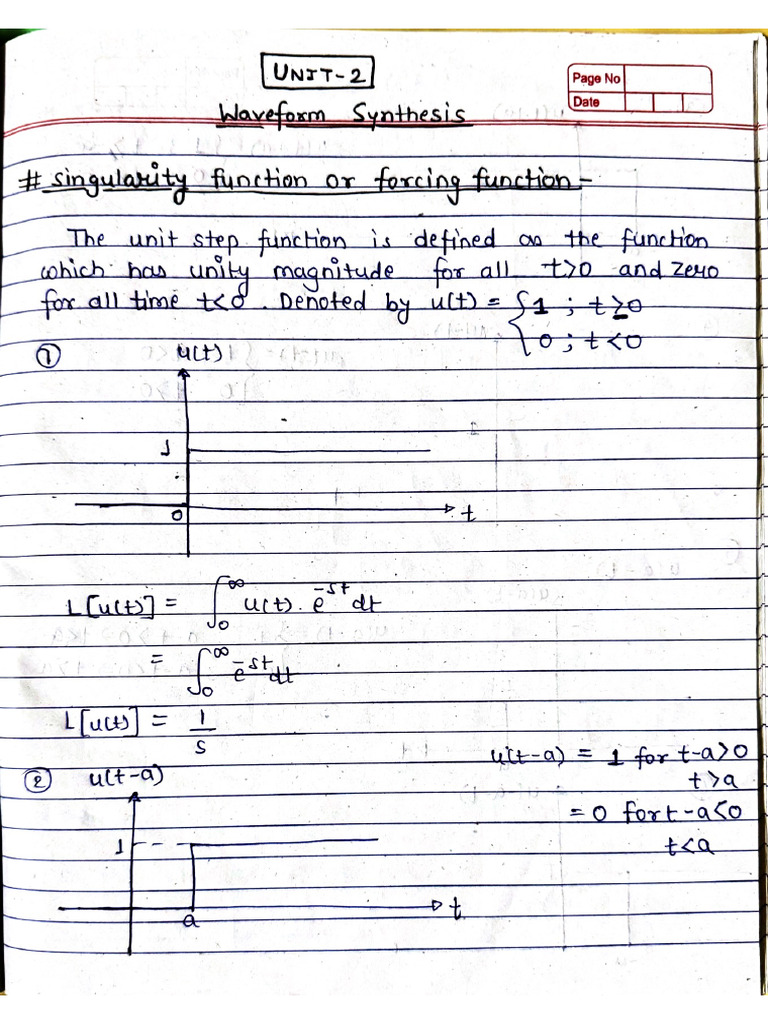 UNIT-2
Page No
Date
Waveform Synthesis
# Singularity function or forcing function -
The unit step function is defined as the function
which has unity magnitude for all t>0 and zero
for all time t<0. Denoted by u(t) = { 1 ; t≥0
0 ; t<0
① u(t)
1
0
t
L[u(t)] = ∫₀^∞ u(t). e^-st dt
= ∫₀^∞ e^-st dt
L[u(t)] = 1/s
② u(t-a)
u(t-a) = 1 for t-a>0
t>a
= 0 for t-a<0
t<a
1
a
t